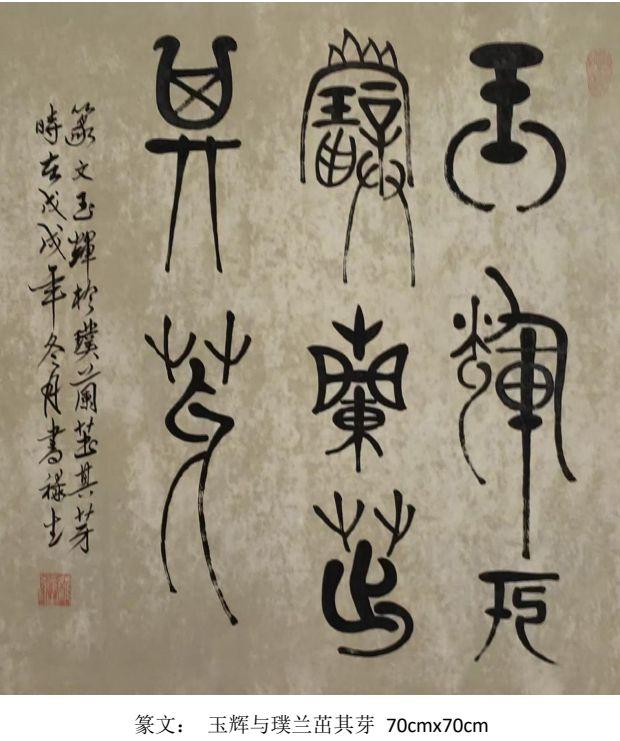 玉輝於
璞蘭茁
其芽
篆文玉輝於璞蘭茁其芽
時在戊戌年冬月書祿生
篆文： 玉辉与璞兰茁其芽 70cmx70cm